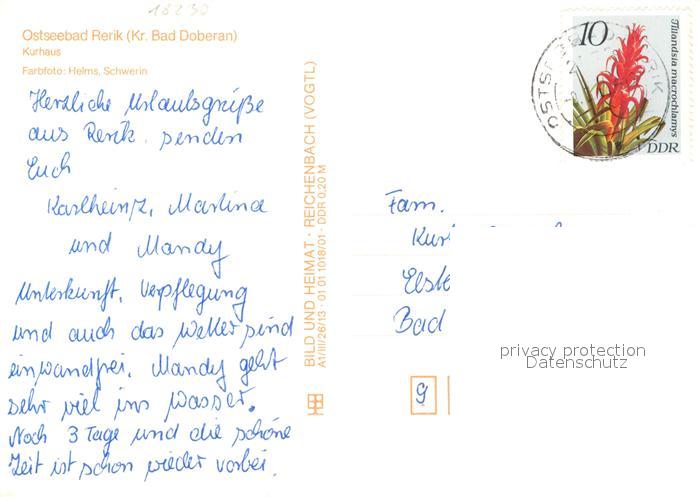 18230
Ostseebad Rerik (Kr. Bad Doberan)
Kurhaus
Farbfoto: Helms, Schwerin
Herzliche Urlaubsgrüße
aus Rerik senden
Euch
Karlheinz, Martina
und Mandy
Unterkunft, Verpflegung
und auch das Wetter sind
einwandfrei. Mandy geht
sehr viel ins Wasser.
Noch 3 Tage und die schöne
Zeit ist schon wieder vorbei.
BILD UND HEIMAT · REICHENBACH (VOGTL)
A1/III/26/13 · 01 01 1018/01 · DDR 0,20 M
10
Tillandsia macrochlamys
DDR
Fam.
Bad
9
privacy protection
Datenschutz